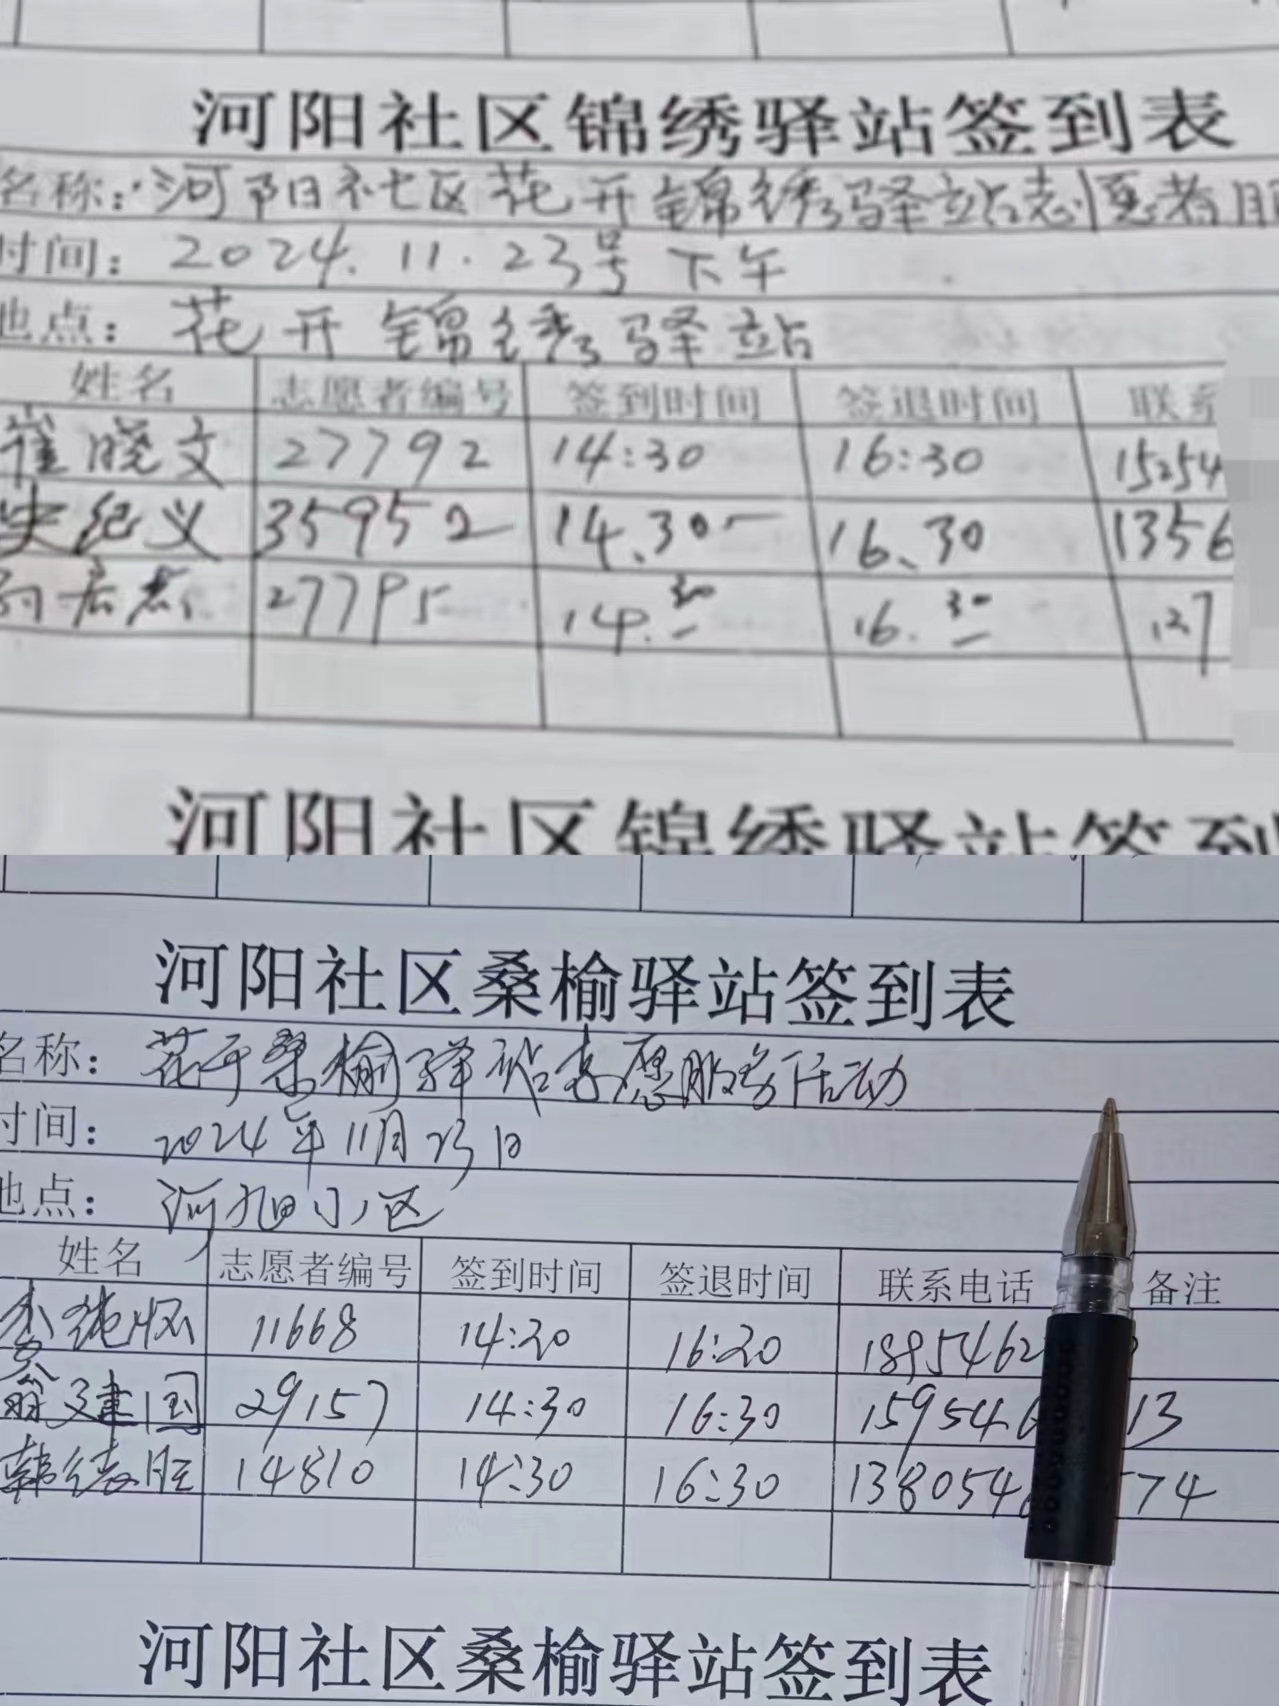 河阳社区锦绣驿站签到表
名称：河阳社区花开锦绣驿站志愿者服
时间：2024.11.23号下午
地点：花开锦绣驿站
姓名 志愿者编号 签到时间 签退时间 联系
崔晓文 27792 14:30 16:30 15254
史纪义 35952 14.30 16.30 1356
27795 14.30 16.30 137
河阳社区锦绣驿站签到
河阳社区桑榆驿站签到表
名称：花开桑榆驿站志愿服务活动
时间：2024年11月23日
地点：河旭小区
姓名 志愿者编号 签到时间 签退时间 联系电话 备注
11668 14:20 16:20 1895462
建国 29157 14:30 16:30 159546 13
韩德胜 14810 14:30 16:30 138054 74
河阳社区桑榆驿站签到表